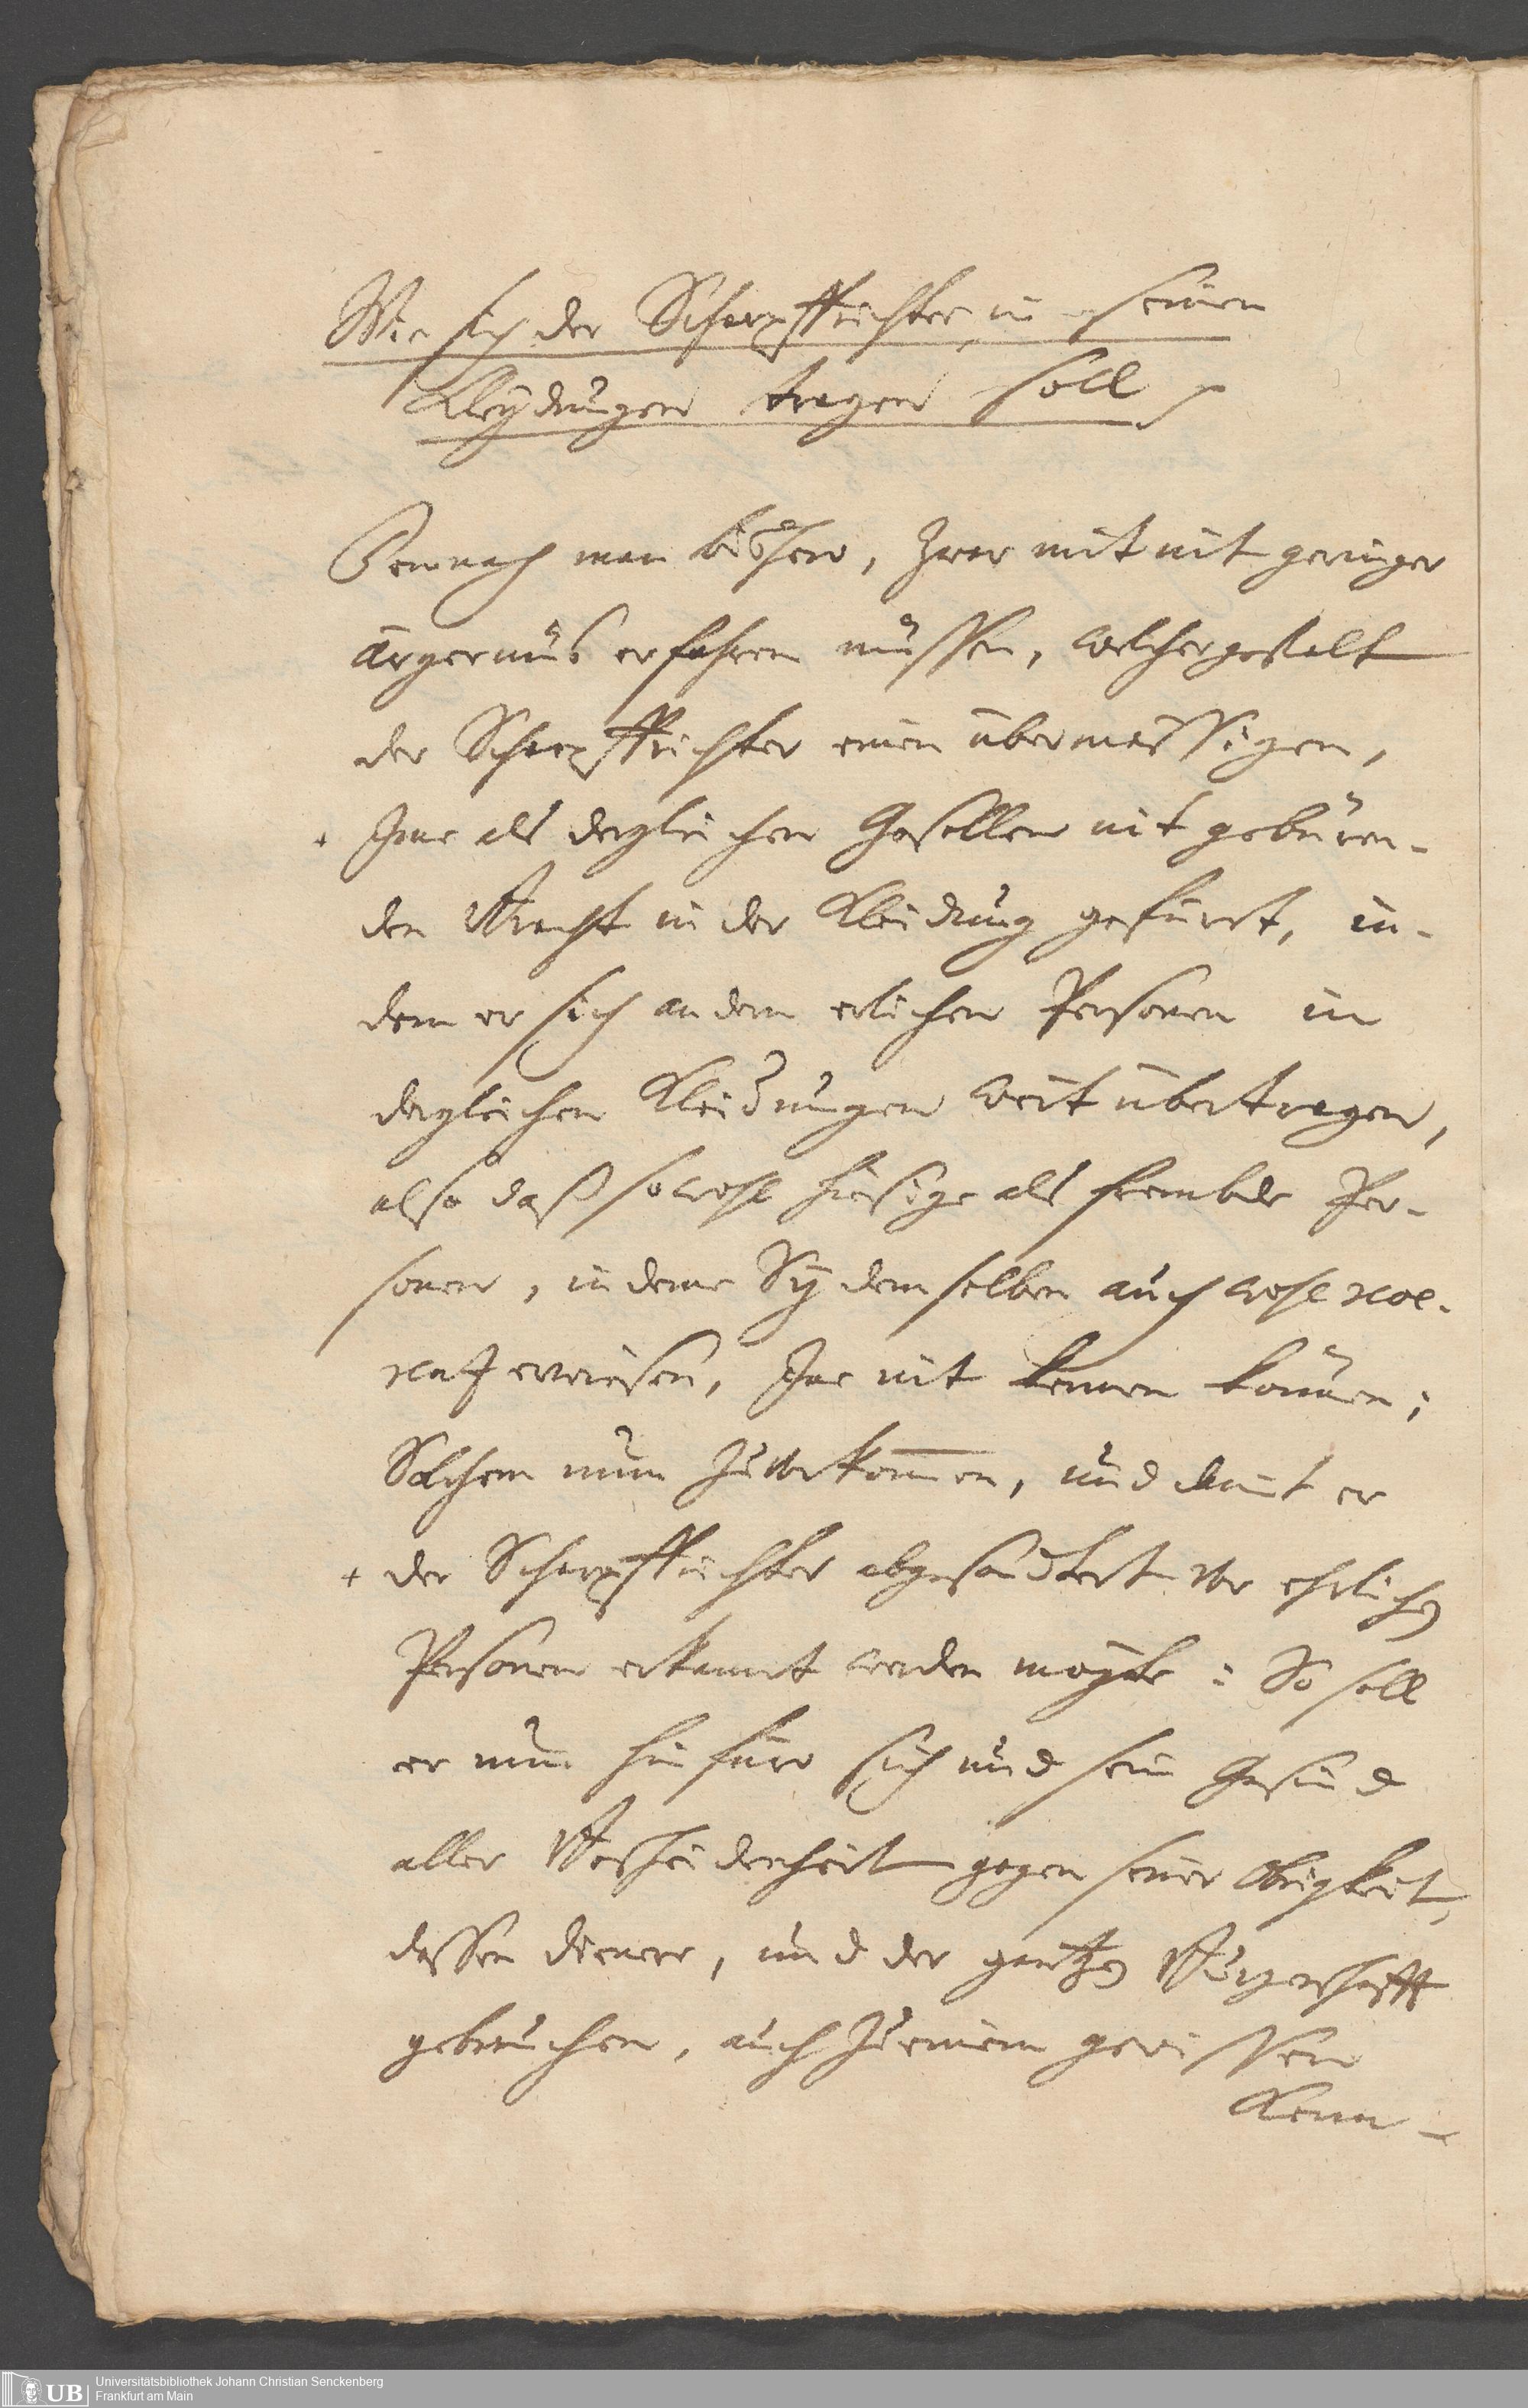 Wie sich der Scharpffrichter, in seinen
Kleydungen tragen soll
Demnach man bißhero, zwar mit nit geringer
ärgernüs erfahren müssen, welchergestalt
der Scharpffrichter einen übermässigen,
Ihme als dergleichen Gesellen nit gebüren-
den Pracht in der Kleidung gefürt, in-
dem er sich andern erlichen Personen in
dergleichen Kleidungen weit übertragen,
also daß sowohl hiesige als frembde Per-
sonen, in deme Sy demselben auch wohl
erwiesen, Ihne nit kennen können;
Solchem nun zuvorkommen, und damit er
+ der Scharpffrichter abgesöndert vor ehrlichen
Personen erkannt werden mögte: So soll
er nun hinfüro sich und sein Gesind
aller Bescheidenheit gegen seiner Obrigkeit,
dessen dienere, und der gantzen Burgerschafft
gebrauchen, auch zu einem gewissen
Kenn-
Universitätsbibliothek Johann Christian Senckenberg
Frankfurt am Main
UB